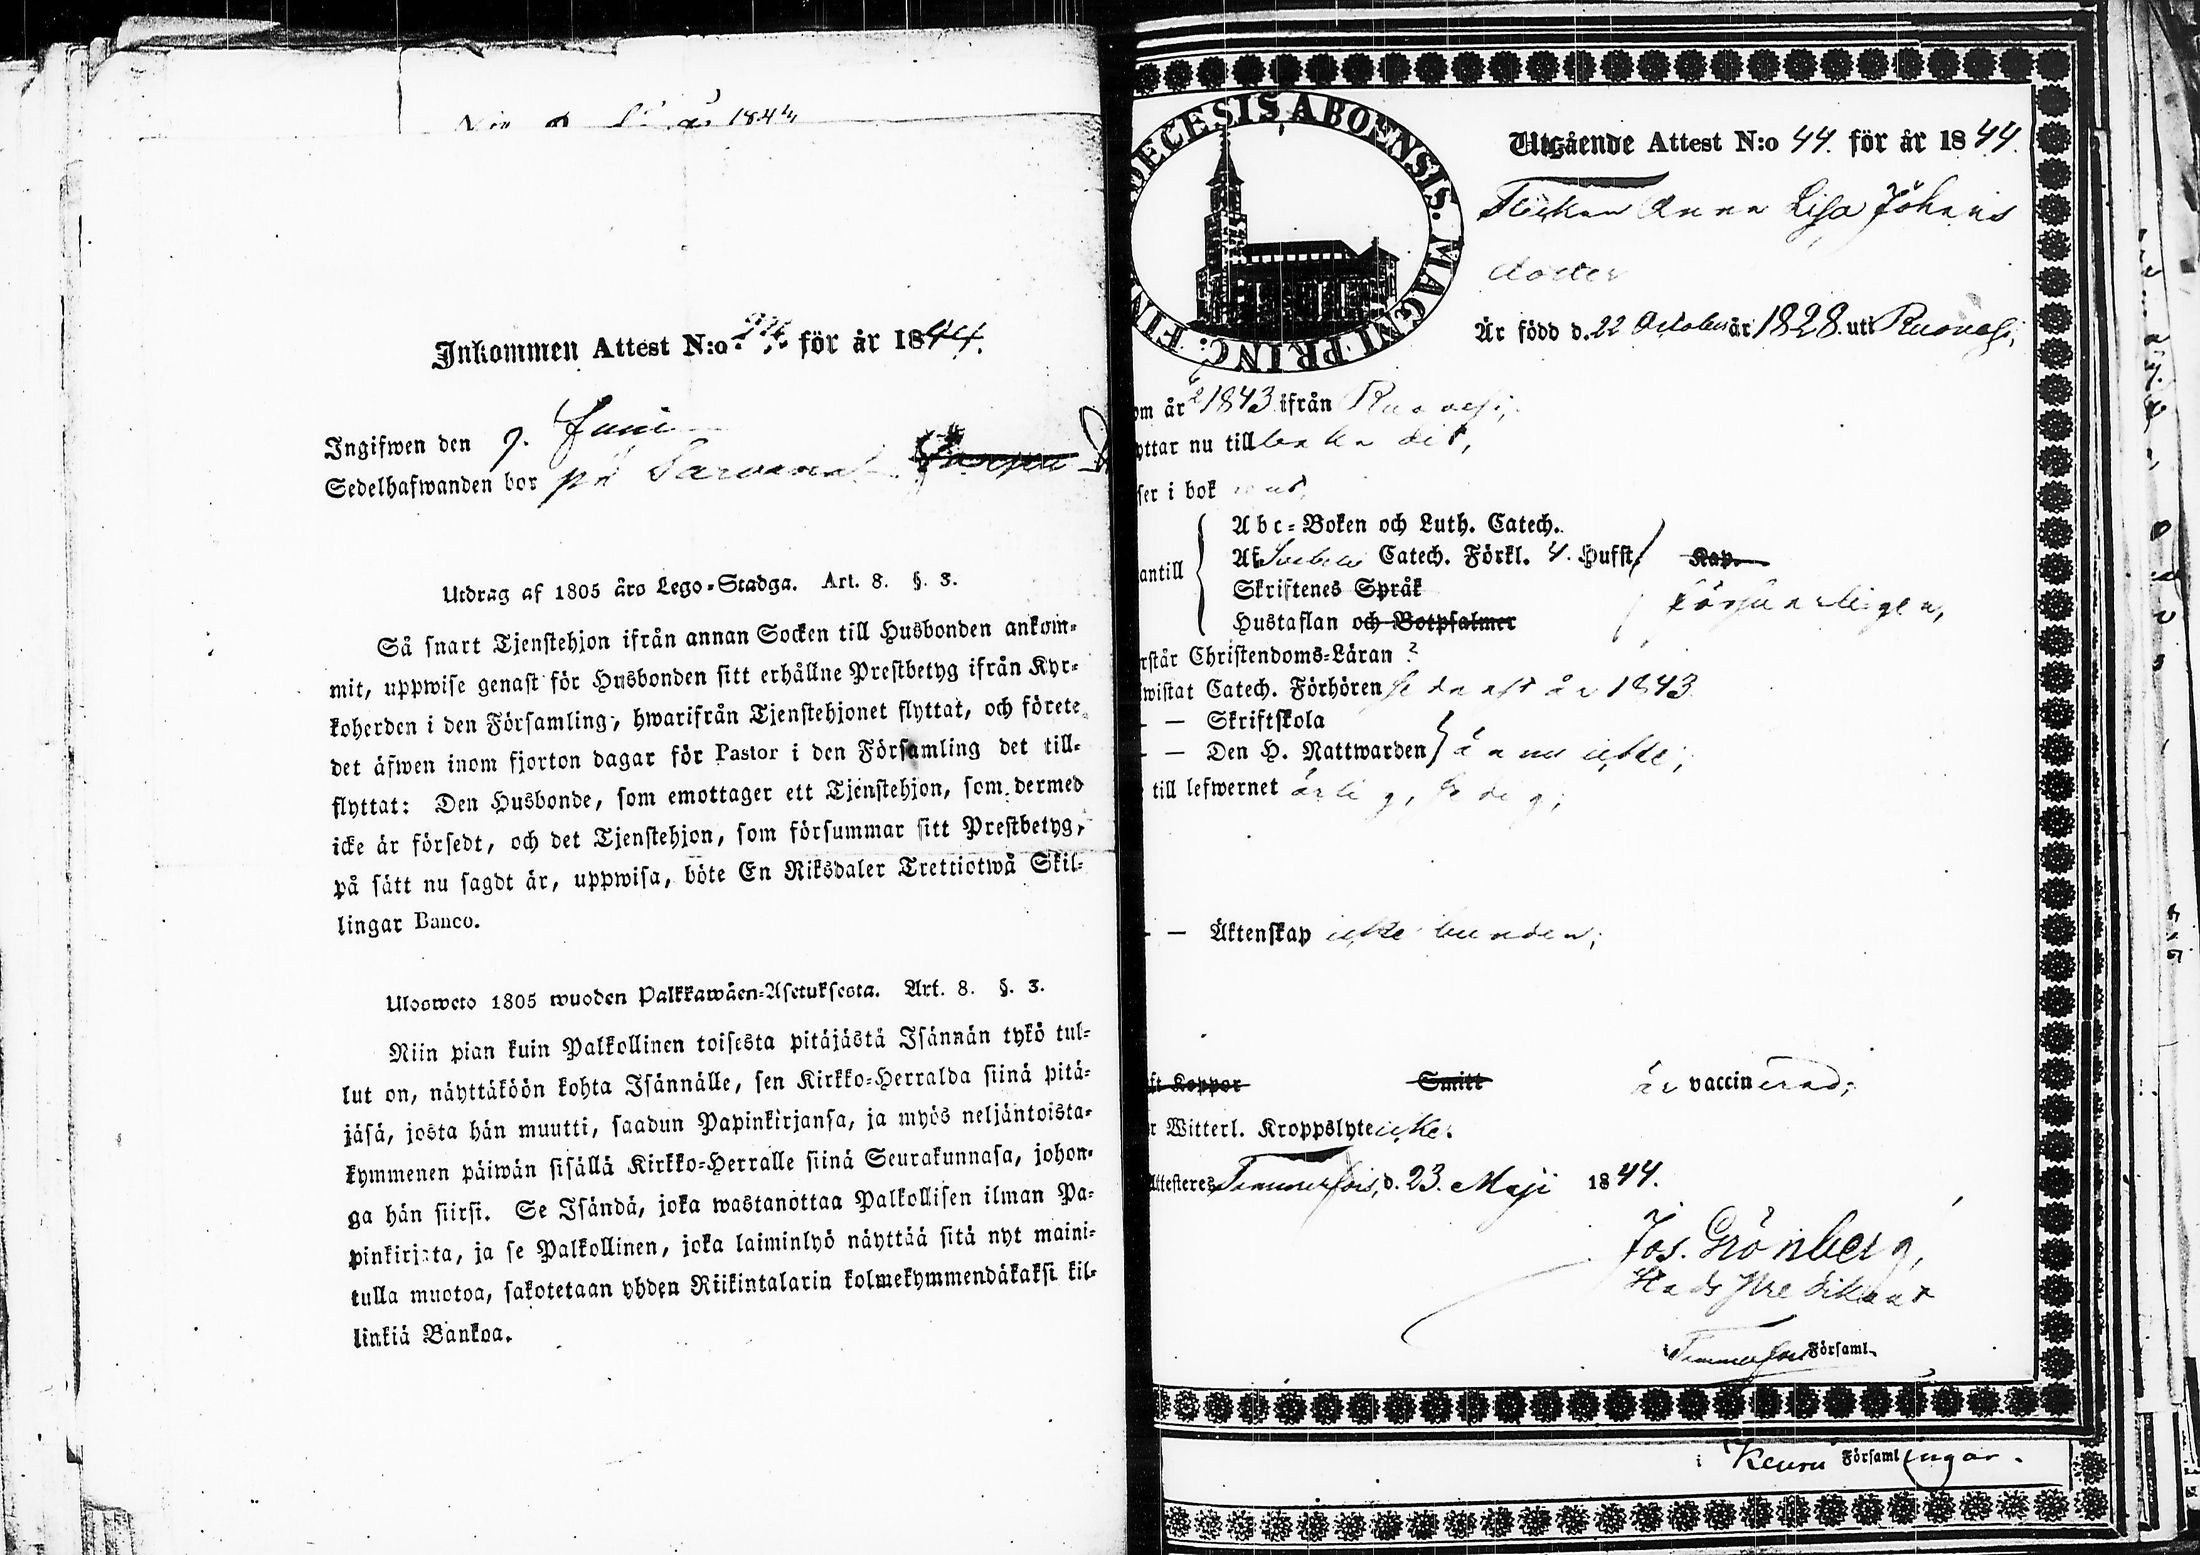 1844
Inkommen Attest N:o för år 1844.
Ingifwen den 9. Juni
Sedelhafwanden bor på
Utdrag af 1805 års Lego-Stadga. Art. 8. §. 3.
Så snart Tjenstehjon ifrån annan Socken till Husbonden ankom-
mit, uppwise genast för Husbonden sitt erhållne Prestbetyg ifrån Kyr-
koherden i den Församling, hwarifrån Tjenstehjonet flyttat, och förete
det äfwen inom fjorton dagar för Pastor i den Församling det till-
flyttat: Den Husbonde, som emottager ett Tjenstehjon, som dermed
icke är försedt, och det Tjenstehjon, som försummar sitt Prestbetyg,
på sätt nu sagdt är, uppwisa, böte En Riksdaler Trettiotwå Skil-
lingar Banco.
Ulosweto 1805 wuoden Palkkawäen-Asetuksesta. Art. 8. §. 3.
Niin pian kuin Palkollinen toisesta pitäjästä Isännän tykö tul-
lut on, näyttäköön kohta Isännälle, sen Kirkko-Herralda siinä pitä-
jäsä, josta hän muutti, saadun Papinkirjansa, ja myös neljäntoista-
kymmenen päiwän sisällä Kirkko-Herralle siinä Seurakunnasa, johon-
ga hän siirsi. Se Isändä, joka wastanottaa Palkollisen ilman Pa-
pinkirjata, ja se Palkollinen, joka laiminlyö näyttää sitä nyt maini-
tulla muotoa, sakotetaan yhden Riikintalarin kolmekymmendäkaksi kil-
linkiä Bankoa.
DECESIS ABOENSIS. MAGNI PRINC: FIN
Utgående Attest N:o 44. för år 1844.
Flickan Anna Lisa Johans
dotter
Är född d. 22 October år 1828. uti Ruovesi,
om år 1843 ifrån Ruovesi,
yttar nu tillbaka dit,
ser i bok
antill
Abc-Boken och Luth. Catech.
Af Catech. Förkl. 4. Hufst. Kap.
Skriftenes Språk
Hustaflan och Botpsalmer
försvarligen,
rstår Christendoms-Läran ?
wistat Catech. Förhören sednast år 1843
- — Skriftskola
- — Den H. Nattwarden ännu icke;
till lefwernet ärlig, sedig;
- — Äktenskap icke bunden;
ft Koppor Smitt är vaccinerad;
r Witterl. Kroppslyte icke.
Attesteres Tammerfors, d. 23. Maji 1844.
Jos. Grönberg,
Stads Predikant
i Tammerfors Församl.
i Keuru Församlingar.